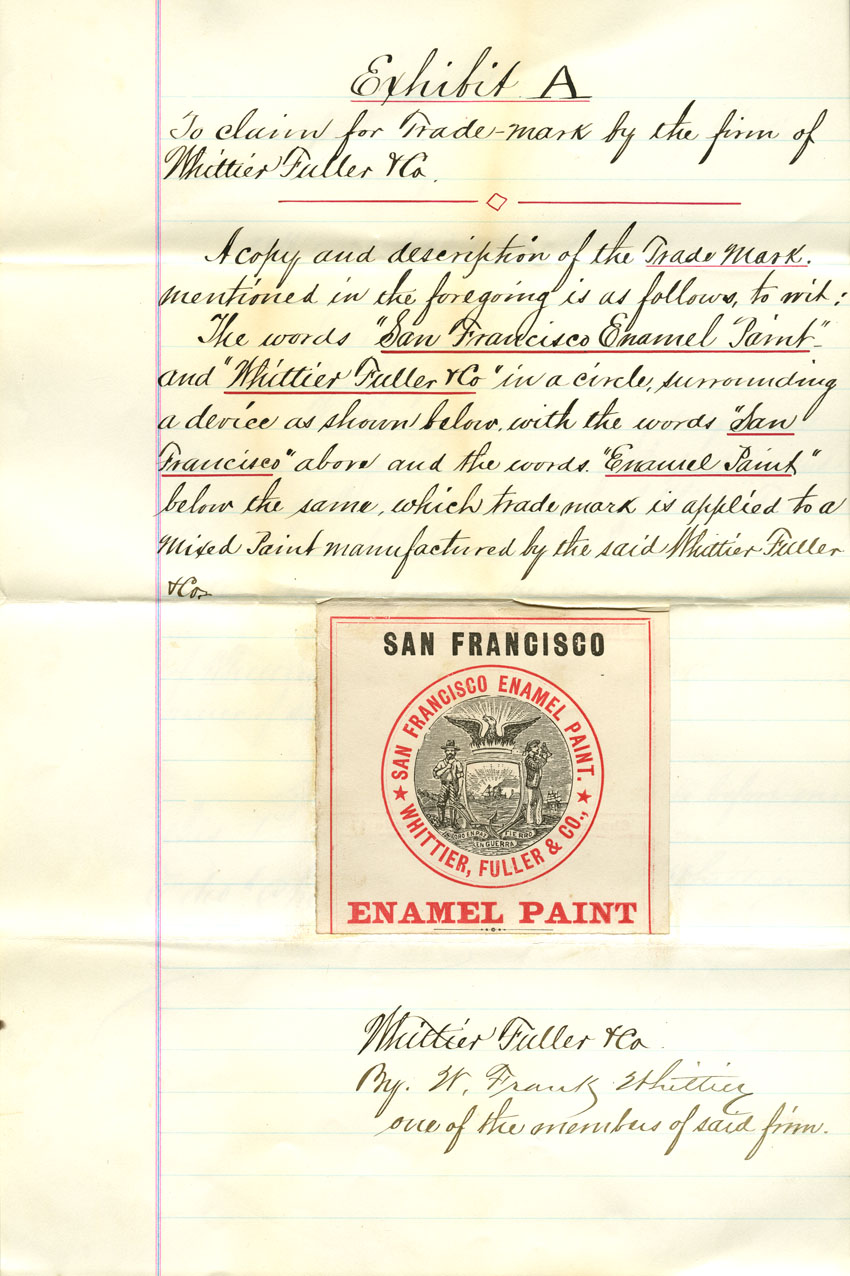 Exhibit A
To claim for Trade-mark by the firm of
Whittier Fuller & Co.
A copy and description of the Trade Mark.
mentioned in the foregoing is as follows, to wit:
The words "San Francisco Enamel Paint"
and "Whittier Fuller & Co" in a circle, surrounding
a device as shown below, with the words "San
Francisco" above and the words "Enamel Paint"
below the same, which trade mark is applied to a
Mixed Paint manufactured by the said Whittier Fuller
& Co.
SAN FRANCISCO
SAN FRANCISCO ENAMEL PAINT.
ORO EN PAZ
FIERRO
EN GUERRA
★ WHITTIER, FULLER & CO., ★
ENAMEL PAINT
Whittier Fuller & Co
By. W. Frank Whittier
one of the members of said firm.